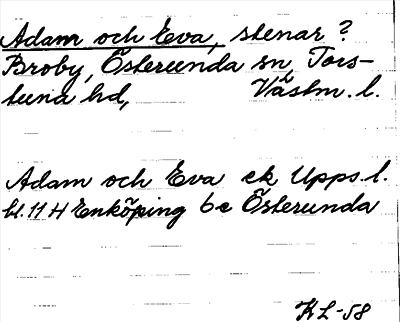 Adam och Eva, stenar?
Broby, Österunda sn, Tors-
tuna hd, Västm. l.
Adam och Eva ek Upps. l.
bl. 11 H Enköping 6c Österunda
KL-58